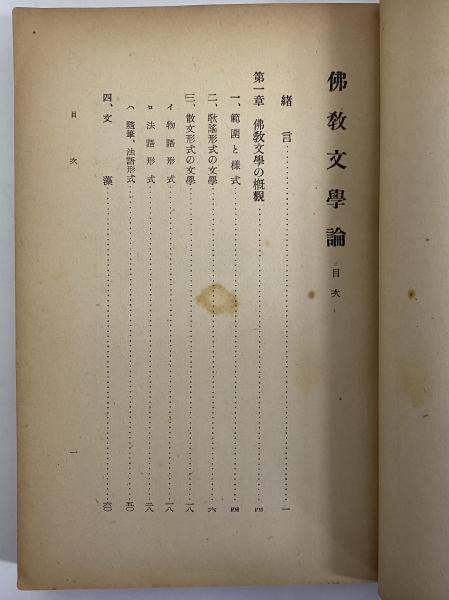 佛敎文學論 目次
緖言……一
第一章 佛敎文學の槪觀……四
一、範圍と樣式……四
二、歌謠形式の文學……六
三、散文形式の文學……一八
イ 物語形式……一八
ロ 法語形式……二八
ハ 隨筆、法語形式……五〇
四、文藻……六〇
目次 一